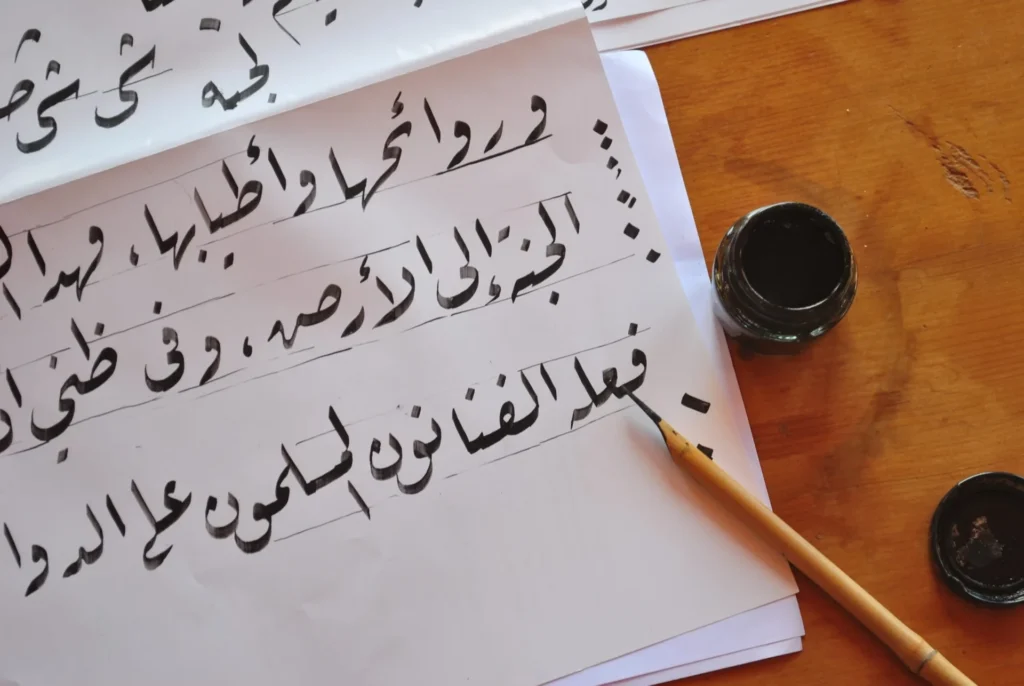 لجنه شى شى
وروائحها وأطيابها، فهدا
الجنة إلى الأرض، وفى ظني
فعله الفنانون المسلمون على الدوا